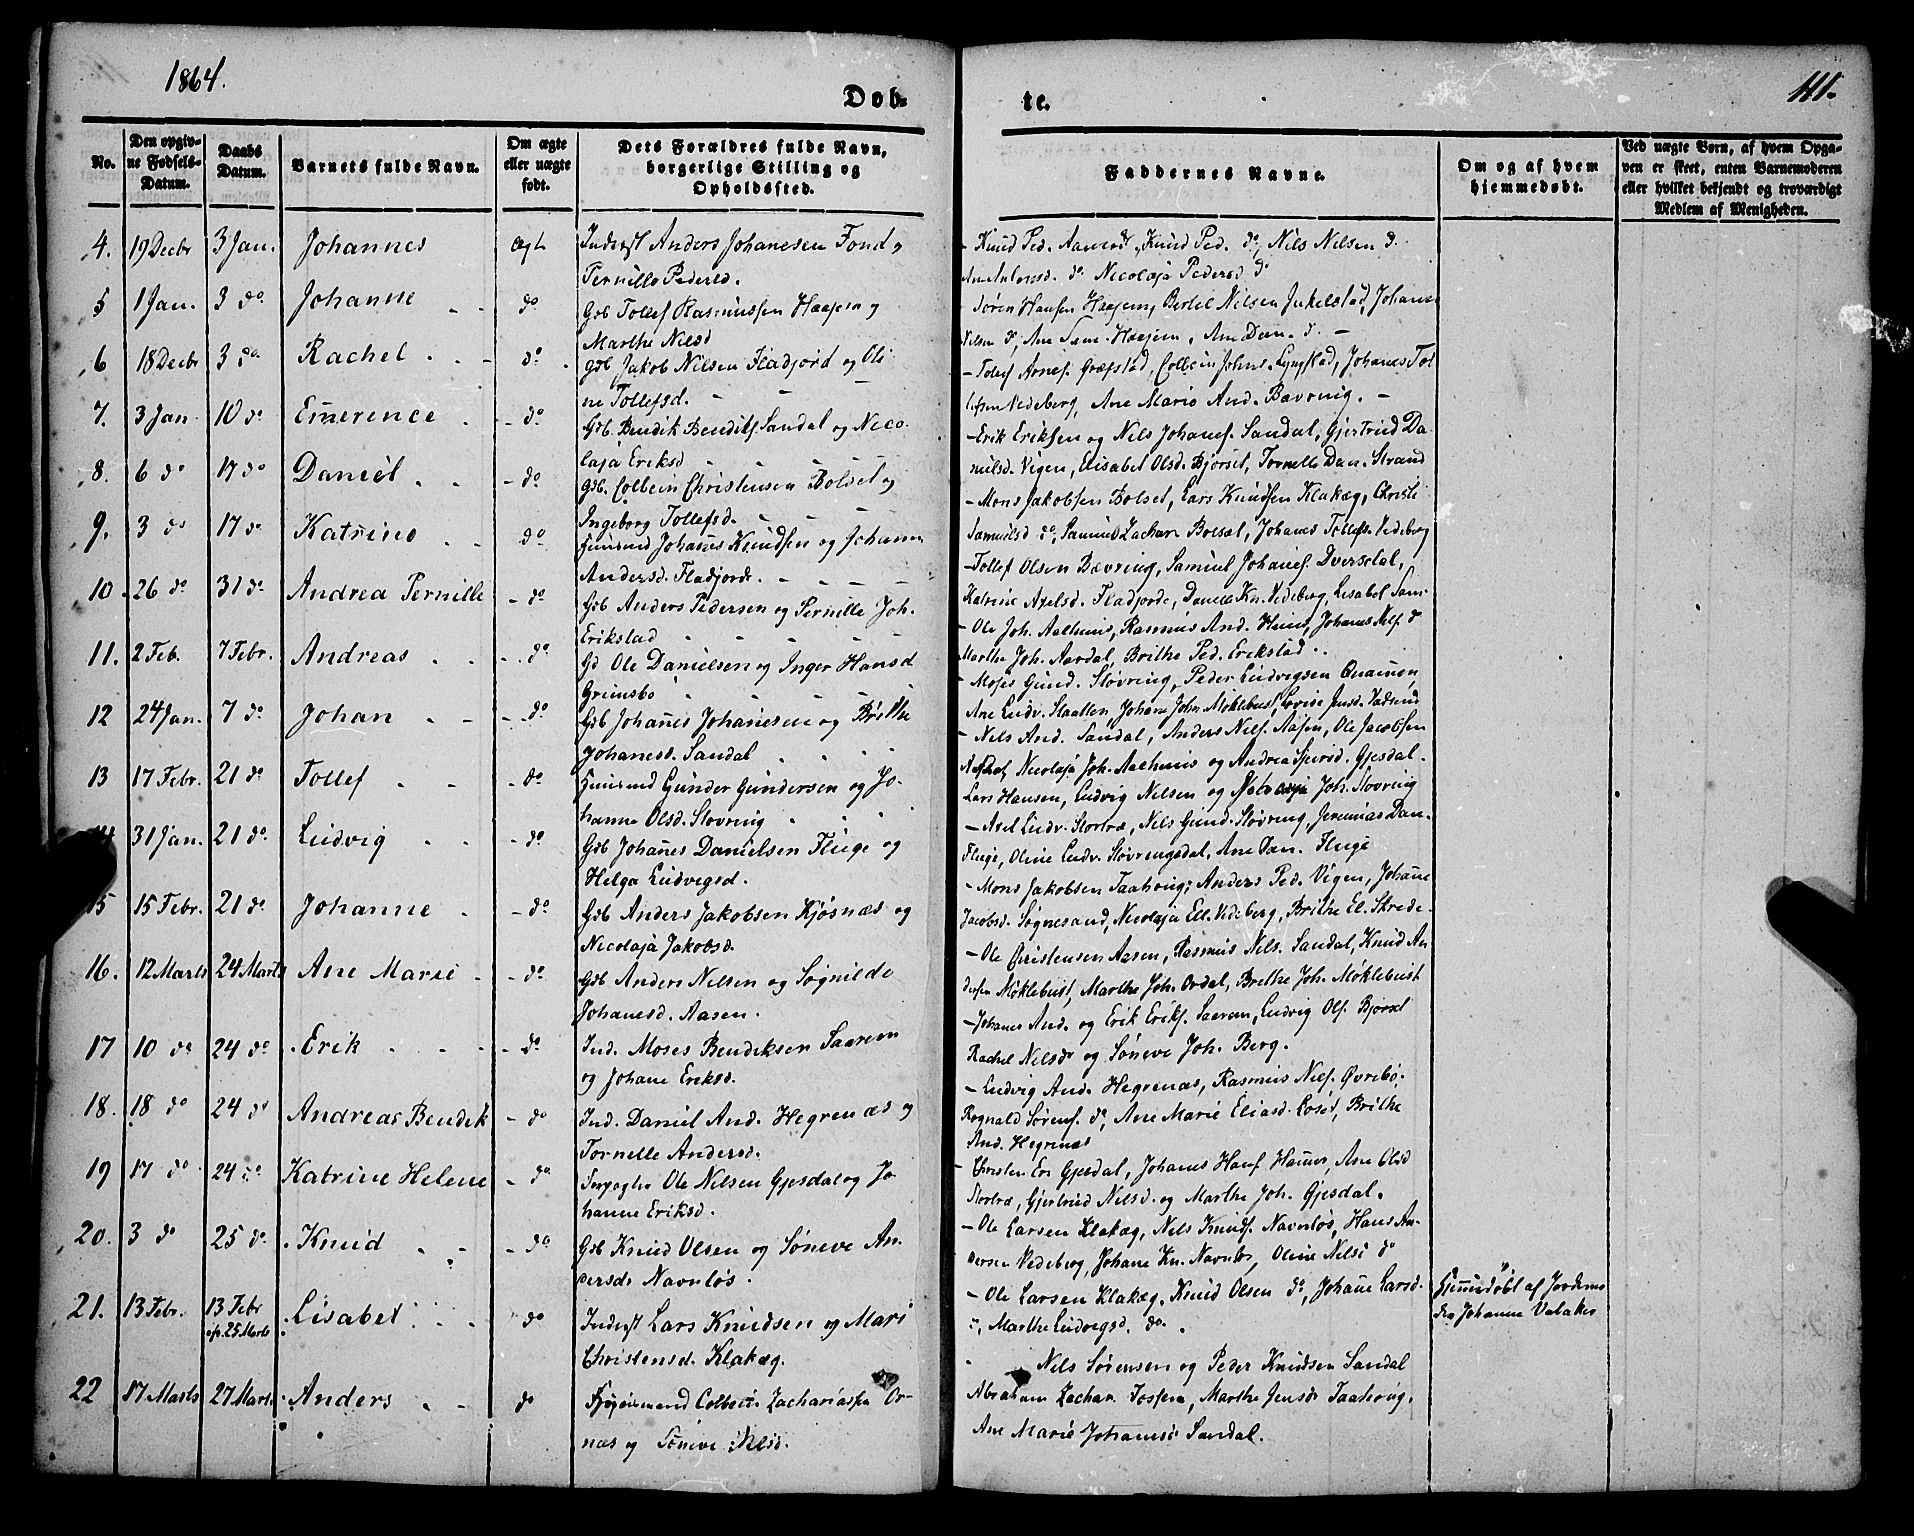 1864.
Døb-
te.
111.
No.
Den opgiv-
ne Fødsels-
Datum.
Daabs
Datum.
Barnets fulde Navn.
Om ægte
eller uægte
født.
Dets Forældres fulde Navn,
borgerlige Stilling og
Opholdssted.
Faddernes Navne.
Om og af hvem
hjemmedøbt.
Ved uægte Børn, af hvem Opga-
ven er skeet, enten Barnemoderen
eller hvilket bekjendt og troværdigt
Medlem af Menigheden.
4. 19 Decbr 3 Jan. Johannes ægt Inderst Anders Johanesen Fond og
Pernille Pedersd.
- Knud Ped. Aamodt, Knud Ped. do, Nils Nilsen do
Ane Antonsd. do Nicolaja Pedersd do
5 1 Jan. 3 do Johanne do Gdb Tollef Rasmussen Haajem og
Marthe Nilsd
- Søren Hansen Haajem, Bertel Nilsen Inkelstad, Johan
Nilsen do, Ane Haajem, Ane Dan. do -
6 18 Decbr 3 do Rachel do Gdb Jakob Nilsen Fladjord og Oli
ne Tollefsd.
- Tollef Arnes. Græfstad, Colbein Johns. Lyngstad, Johanes Tol
lefsen Vedeberg, Ane Marie And. Bævring. -
7. 3 Jan. 10 do Emerence do Gdb. Bendik Bendiks. Sandal og Nico-
laja Eriksd
- Erik Eriksen og Nils Johanes. Sandal, Gjertrud Da-
nielsd. Vigen, Elisabet Olsd. Bjørset, Tornelle Dan. Strand
8. 6 do 17 do Daniel do Gdb. Colbein Christensen Bolset og
Ingeborg Tollefsd.
- Mons Jakobsen Bolset, Lars Knudsen Klakæg, Christi
Samuelsd do, Samuel Zachar. Bolset, Johanes Tollefs. Vedeberg
9. 3 do 17 do Katrine do Huusmd Johanes Knudsen og Johanne
Andersd. Fladjorde.
Tollef Olsen Bævring, Samuel Johanes. Dversdal,
Katrine Axelsd. Fladjorde, Daniel Kn. Vedeberg, Lisabet Sam-
10 26 do 31 do Andrea Pernille do Gdb Anders Pedersen og Pernille Joh.
Erikstad
- Ole Joh. Aalhuus, Rasmus And. Huus, Johanes Nils. do
Marthe Joh. Aardal, Brithe Ped. Erikstad.
11. 2 Feb. 7 Febr. Andreas do Gd Ole Danielsen og Inger Hansd
Grimsbø
- Moses Gund. Støvring, Peder Ludvigsen Quamen,
Ane Ludv. Slaatten, Johane John. Møklebust, Lovise Jens.
12 24 Jan. 7 do Johan do Gdb Johanes Johanesen og Brithe
Johanesd. Sandal
- Nils And. Sandal, Anders Nils. Aasen, Ole Jacobsen
Nicolaja Joh. Aalhuus og Andrea Sjursd. Gjesdal.
13 17 Febr. 21 do Tollef do Huusmd Gunder Gundersen og Jo-
hanne Olsd. Støvring
Lars Hansen, Ludvig Nilsen og Joh. Støvring
14 31 Jan. 21 do Ludvig do Gdb Johanes Danielsen Fluge og
Helga Ludvigsd.
- Axel Ludv. Stortræ, Nils Gund. Støvring, Jeremias Dan.
Fluge, Oline Ludv. Støvringsdal, Ane Dan. Fluge
15 15 Febr. 21 do Johanne do Gdb Anders Jakobsen Kjøsnæs og
Nicolaja Jakobsd.
- Mons Jakobsen Taahoug, Anders Ped. Vigen, Johane
Jacobsd. Søgnesand, Nicolaja Ell. Vedeberg, Brithe El. Skrede.
16. 12 Marts 24 Marts Ane Marie do Gdb Anders Nilsen og Søgnilde
Johanesd. Aasen.
- Ole Christensen Aasen, Rasmus Nils. Sandal, Knud An
dersen Møklebust, Marthe Joh. Ordal, Brithe Joh. Møklebust
17 10 do 24 do Erik do Ind. Moses Bendiksen Saarem
og Johane Eriksd.
- Johanes And. og Erik Eriks. Saarem, Ludvig Ols. Bjørset
Rachel Nilsd og Søneve Joh. Berg.
18. 18 do 24 do Andreas Bendik do Ind. Daniel And. Hegrenæs og
Tornelle Andersd.
- Ludvig And. Hegrenæs, Rasmus Nils. Øvrebø.
Rognald Sørens. do, Ane Marie Eliasd. Loset, Brithe
And. Hegrenæs
19 17 do 24 do Katrine Helene do Ole Nilsen Gjesdal og Jo
hanne Eriksd.
- Christen Er. Gjesdal, Johanes Hans. , Ane Olsd
Stortræ, Gjertrud Nilsd. og Marthe Joh. Gjesdal.
20. 3 do 25 do Knud do Gdb Knud Olsen og Søneve An-
dersd. Navnløs.
- Ole Larsen Klakæg, Nils Knuds. Navnløs, Hans An-
dersen Vedeberg, Johane Kn. Navnløs, Oline Nilsd do
21. 13 Febr. 13 Febr Lisabet do Inderst Lars Knudsen og Mari
25 Marts
Christensd. Klakæg.
- Ole Larsen Klakæg, Knud Olsen do, Johane Larsd.
Marthe Ludvigsd. do.
Hjemmedøbt af Jordemo
der Johanne Valaker
22 17 Marts 27 Marts Anders do Colbein Zachariassen Or-
næs og Søneve Nilsd.
Nils Sørensen og Peder Knudsen Sandal
Abraham Zachar. , Marthe Jensd Taahoug,
Ane Marie Johanesd Sandal.